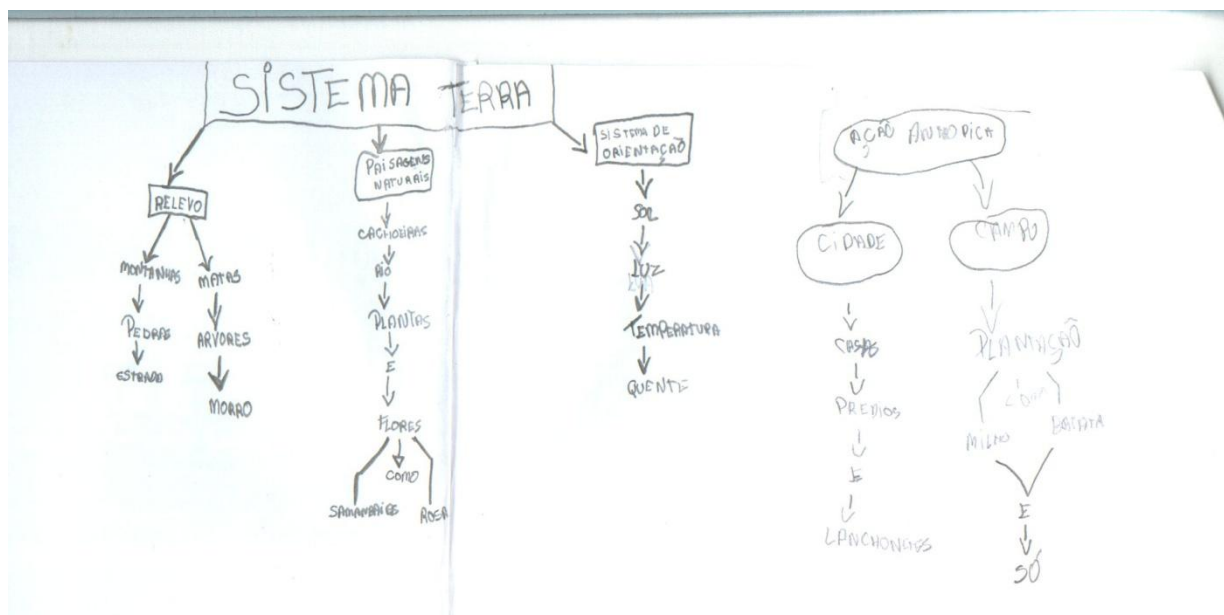 SISTEMA TERRA
RELEVO
MONTANHAS
PEDRAS
ESTRADO
MATAS
ARVORES
MORRO
PAISAGENS
NATURAIS
CACHOEIRAS
RIO
PLANTAS
E
FLORES
COMO
SAMAMBAIES
ROSA
SISTEMA DE
ORIENTAÇÃO
SOL
LUZ
TEMPERATURA
QUENTE
AÇÃO
CIDADE
CASAS
PREDIOS
E
LANCHONETES
CAMPO
PLANTAÇÃO
MILHO
BATATA
E
SÓ